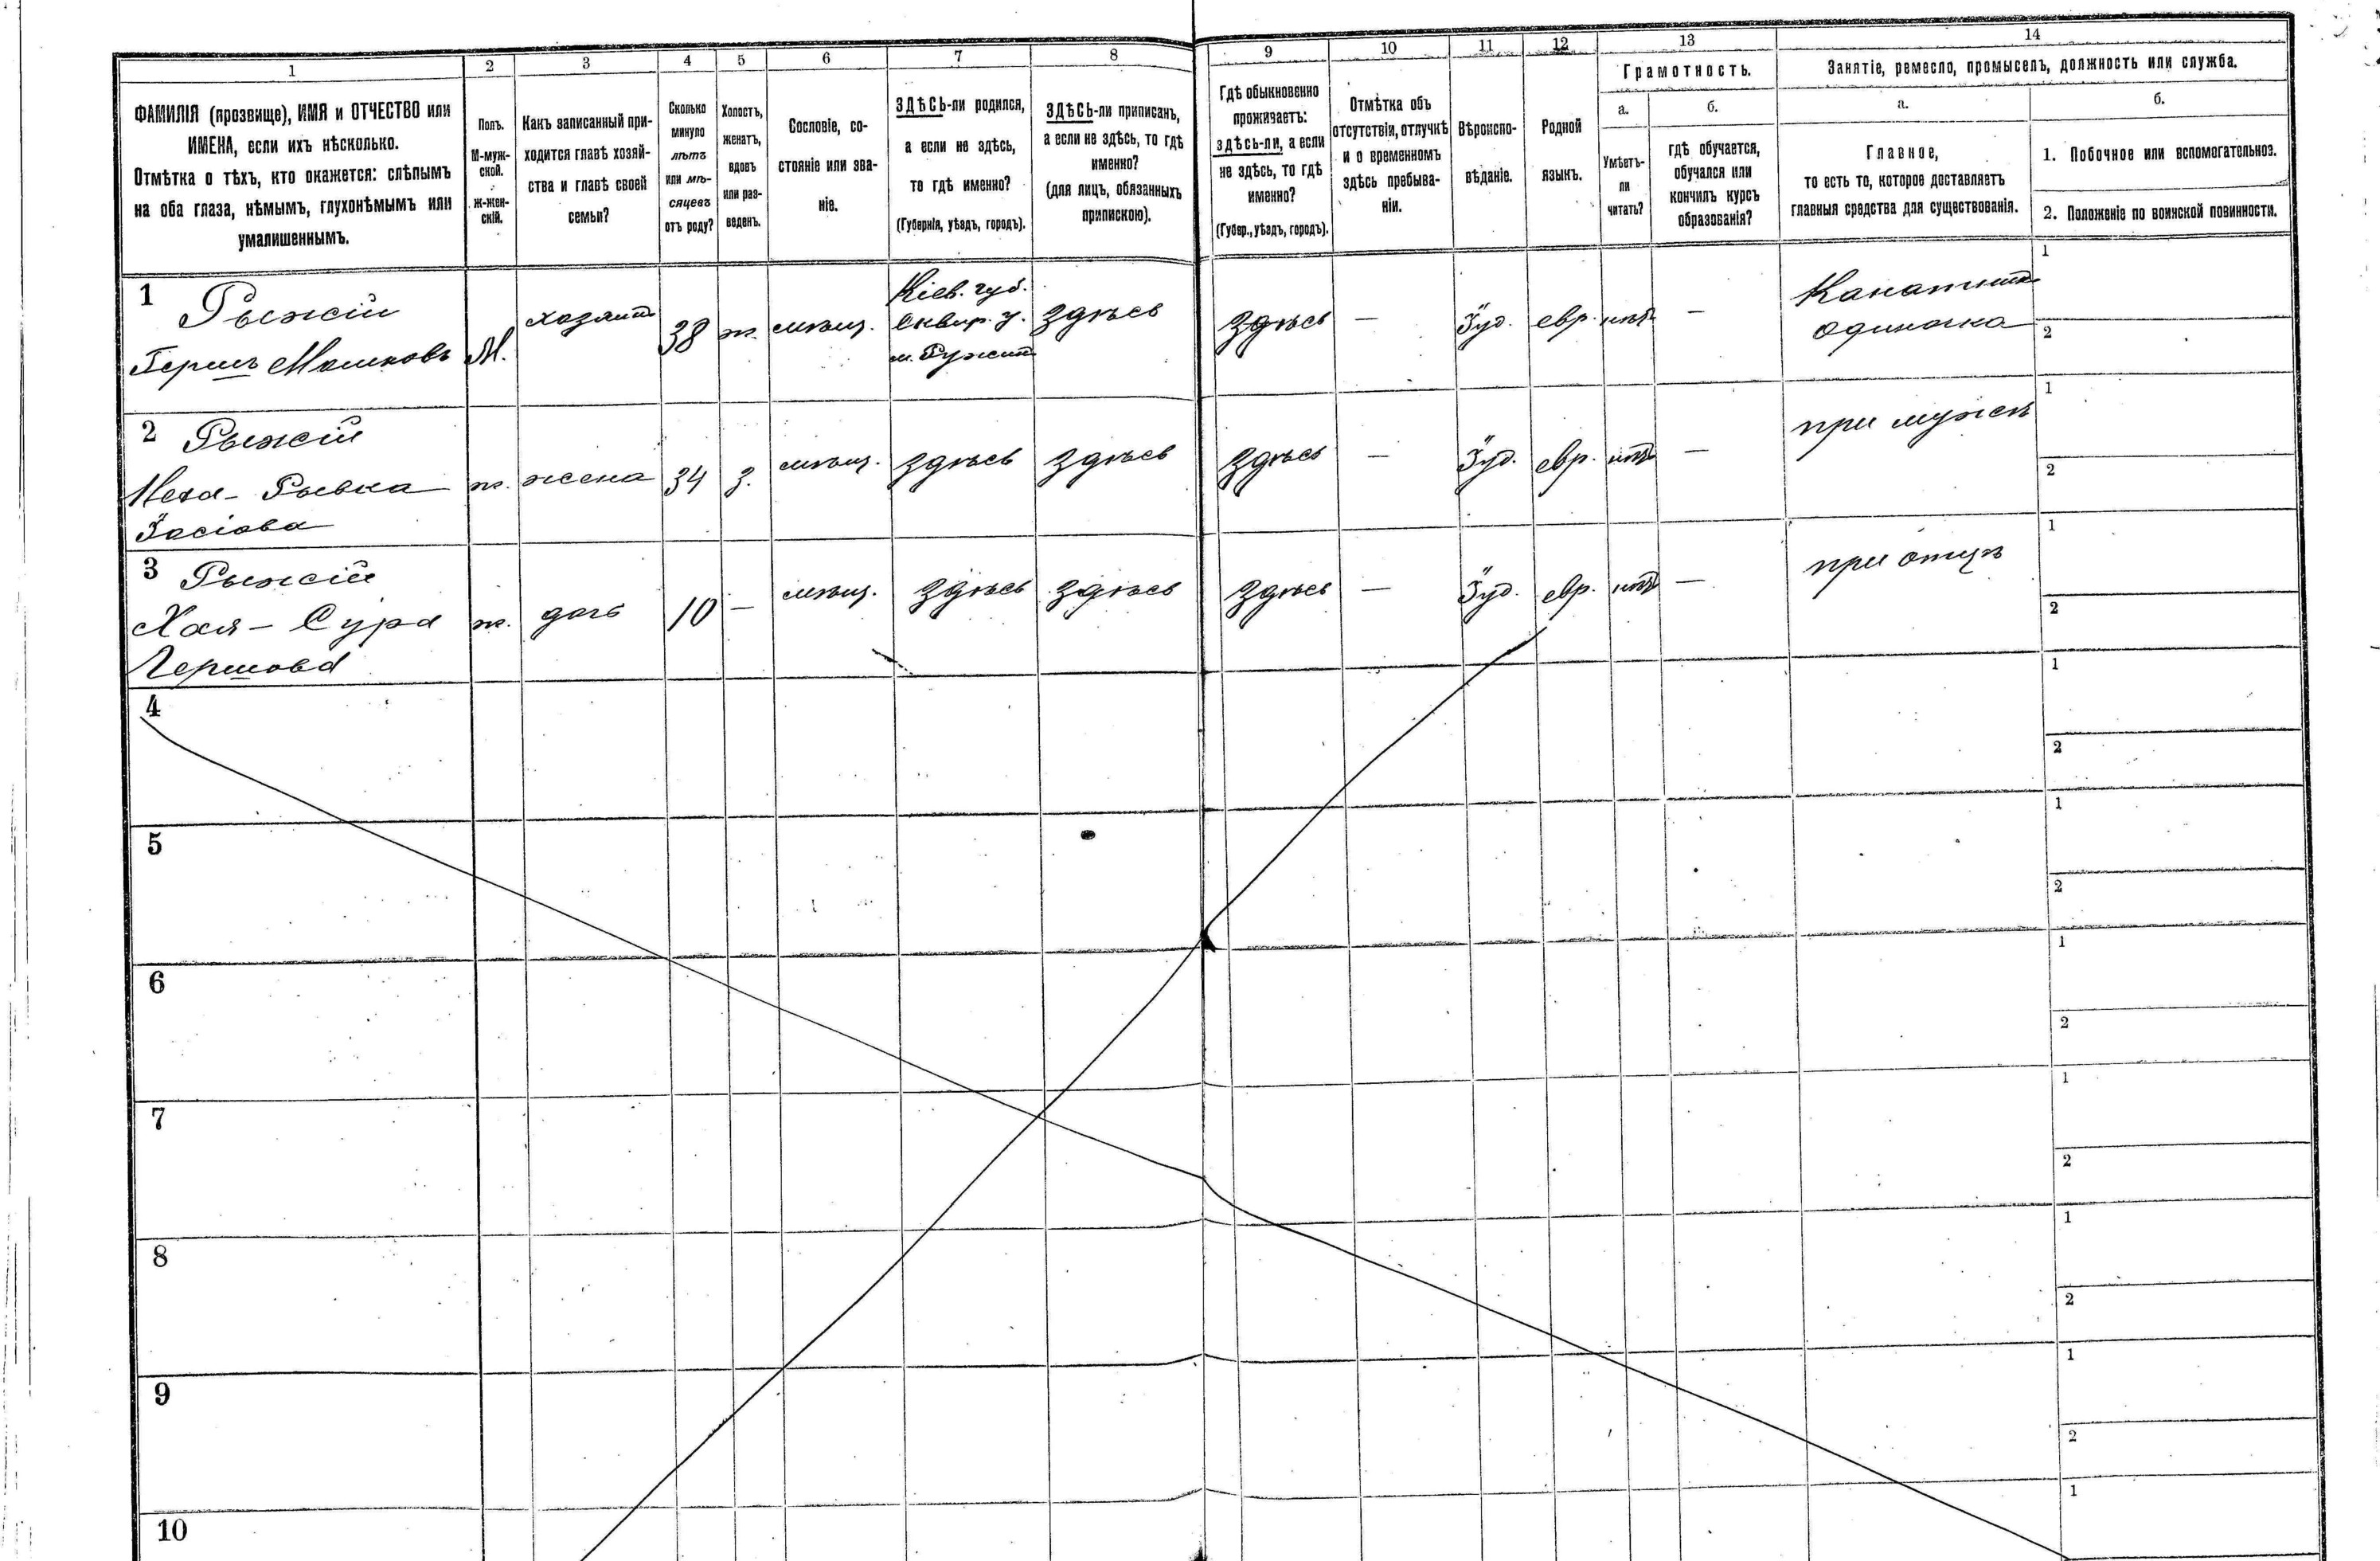 1 2 3 4 5 6 7 8 9 10 11 12 13 14
ФАМИЛІЯ (прозвище), ИМЯ и ОТЧЕСТВО или
ИМЕНА, если ихъ нѣсколько.
Отмѣтка о тѣхъ, кто окажется: слѣпымъ
на оба глаза, нѣмымъ, глухонѣмымъ или
умалишеннымъ.
Полъ.
М-муж-
ской.
Ж-жен-
скій.
Какъ записанный при-
ходится главѣ хозяй-
ства и главѣ своей
семьи?
Сколько
минуло
лѣтъ
или мѣ-
сяцевъ
отъ роду?
Холостъ,
женатъ,
вдовъ
или раз-
веденъ.
Сословіе, со-
стояніе или зва-
ніе.
ЗДѢСЬ-ли родился,
а если не здѣсь,
то гдѣ именно?
(Губернія, уѣздъ, городъ).
ЗДѢСЬ-ли приписанъ,
а если не здѣсь, то гдѣ
именно?
(для лицъ, обязанныхъ
припискою).
Гдѣ обыкновенно
проживаетъ:
здѣсь-ли, а если
не здѣсь, то гдѣ
именно?
(Губер., уѣздъ, городъ).
Отмѣтка объ
отсутствіи, отлучкѣ
и о временномъ
здѣсь пребыва-
ніи.
Вѣроиспо-
вѣданіе.
Родной
языкъ.
Грамотность.
а.
Умѣетъ-
ли
читать?
б.
гдѣ обучается,
обучался или
кончилъ курсъ
образованія?
Занятіе, ремесло, промыселъ, должность или служба.
а.
Главное,
то есть то, которое доставляетъ
главныя средства для существованія.
б.
1. Побочное или вспомогательное.
2. Положеніе по воинской повинности.
1 Рыжій
Гершъ Мошковъ
М.
хозяинъ
38
ж.
мѣщ.
Кіев. губ.
Сквир. у.
м. Ружинъ
здѣсь
здѣсь
—
Іуд.
евр.
нѣтъ
—
Канатникъ
одиночка
1
2
2 Рыжій
Неха-Рывка
Іосіова
ж.
жена
34
з.
мѣщ.
здѣсь
здѣсь
здѣсь
—
Іуд.
евр.
нѣтъ
—
при мужѣ
1
2
3 Рыжій
Хая-Сура
Гершова
ж.
дочь
10
—
мѣщ.
здѣсь
здѣсь
здѣсь
—
Іуд.
евр.
нѣтъ
—
при отцѣ
1
2
4
1
2
5
1
2
6
1
2
7
1
2
8
1
2
9
1
2
10
1